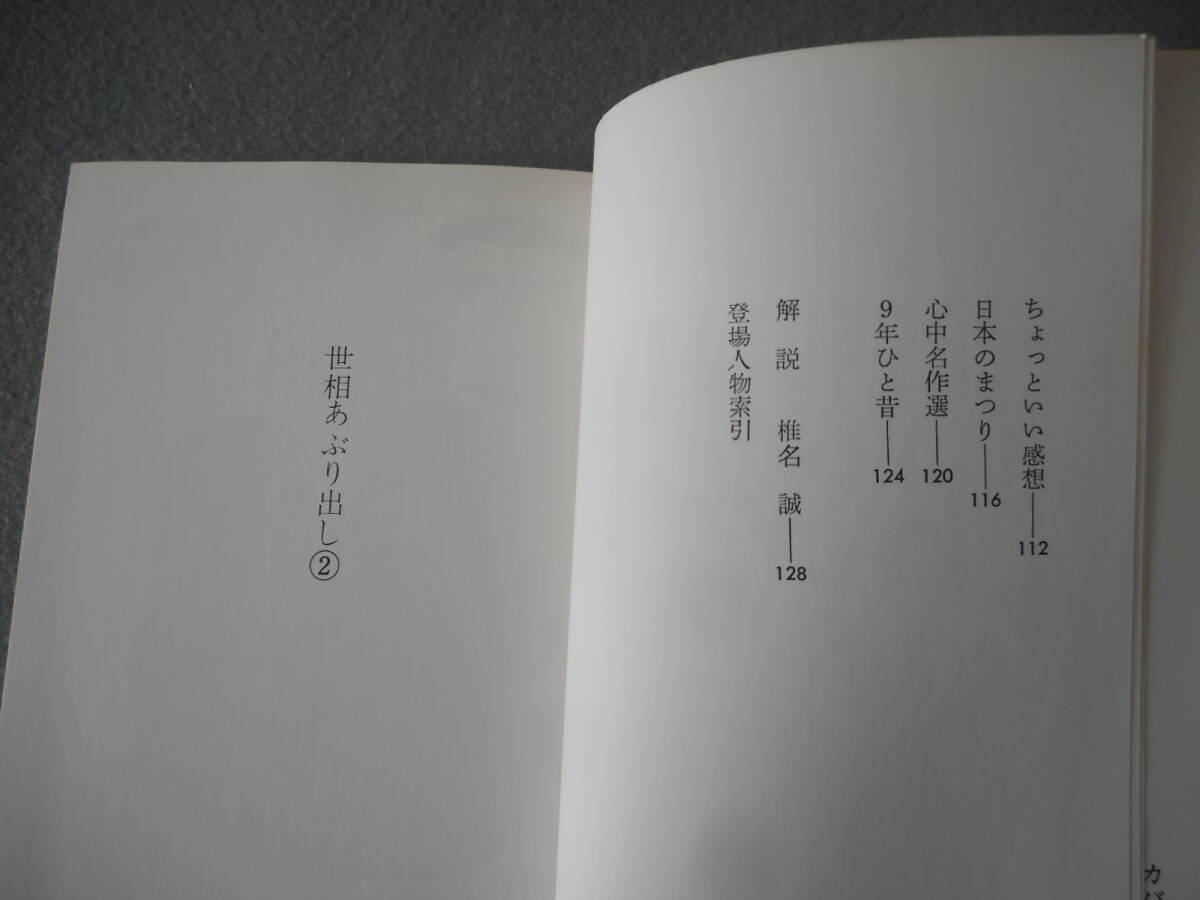 ちょっといい感想——112
日本のまつり——116
心中名作選——120
9年ひと昔——124
解説 椎名 誠——128
登場人物索引
世相あぶり出し②
カバ